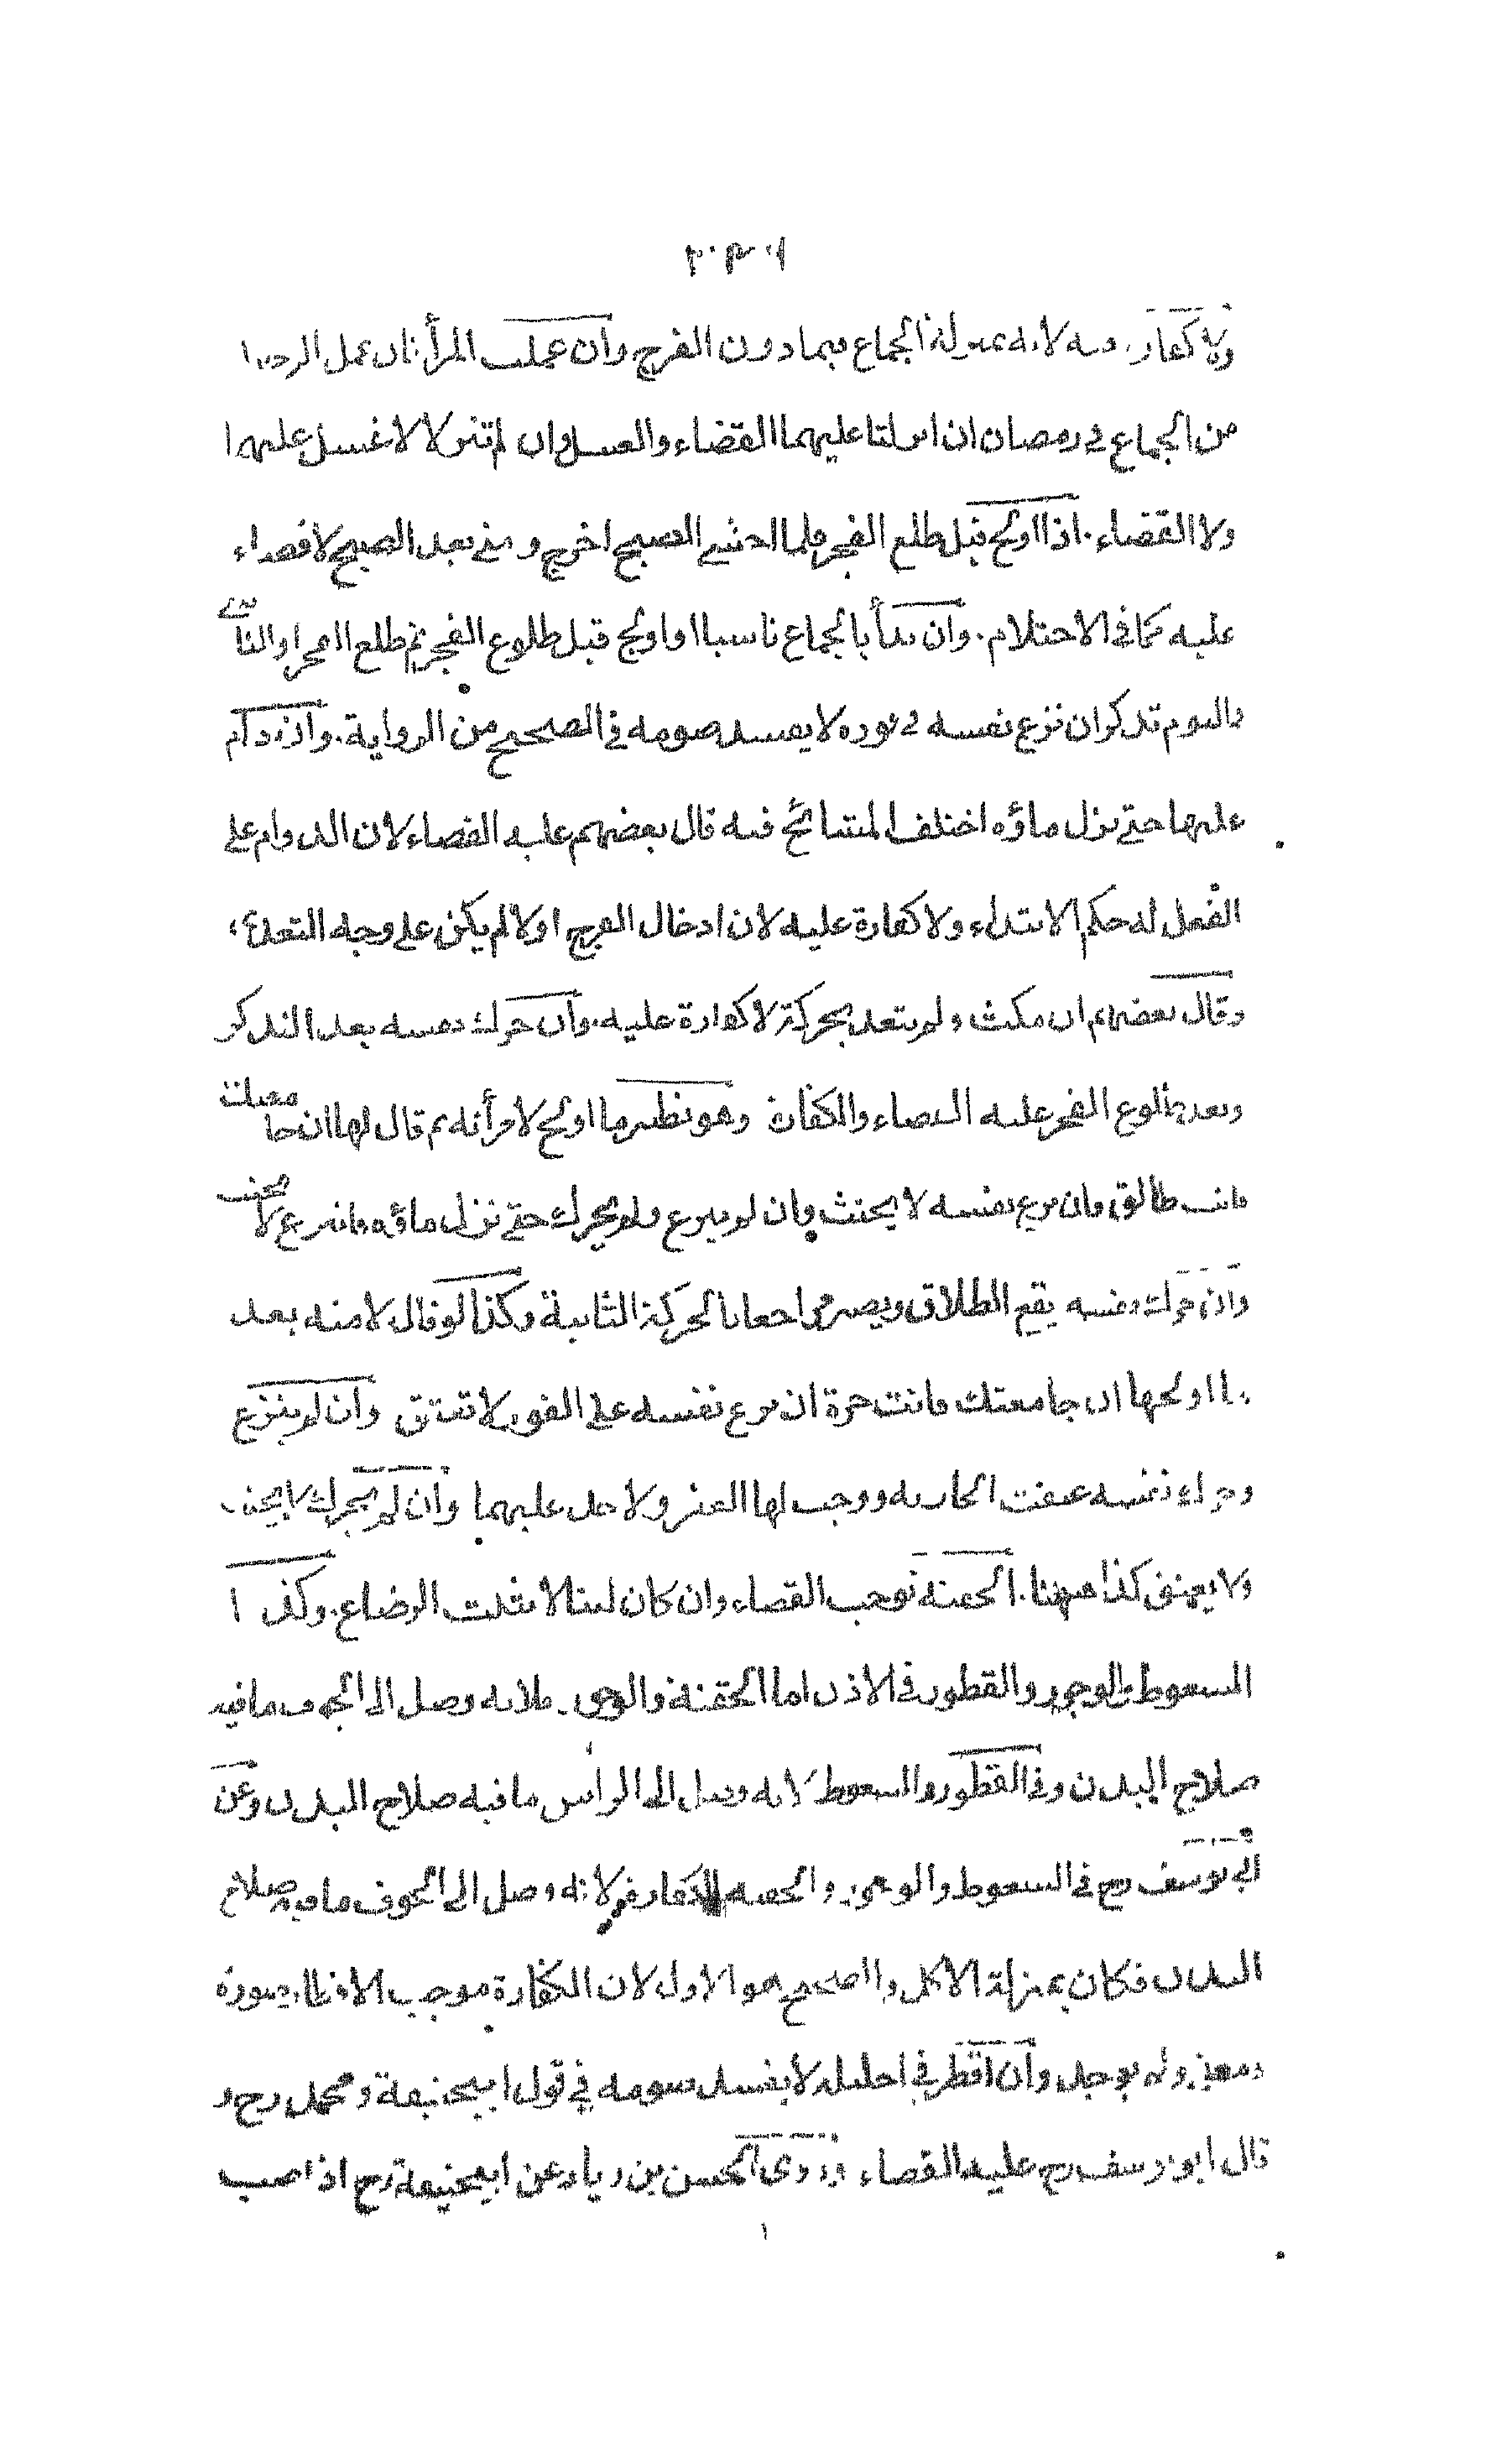 ولا كفارة فيه لانه بمنزلة الجماع فيما دون الفرج وان عملت المرأتان عمل الرجال
من الجماع في رمضان ان انزلتا عليهما القضاء والغسل وان لم تنزلا لا غسل عليهما
ولا القضاء. اذا اولج قبل طلع الفجر فلما اخشى الصبح اخرج و منى بعد الصبح لا قضاء
عليه كما في الاحتلام. وان بدأ بالجماع ناسيا او اولج قبل طلوع الفجر ثم طلع الفجر او الناسي
تذكر ان نزع نفسه في فوره لا يفسد صومه في الصحيح من الرواية. وان دام
عليها حتى نزل ماؤه اختلف المشائخ فيه قال بعضهم عليه القضاء لان الدوام على
الفعل له حكم الابتداء ولا كفارة عليه لان ادخال الفرج اولا لم يكن على وجه التعدي
وقال بعضهم ان مكث ولم يتعد بحركة لا كفارة عليه. وان حرك نفسه بعد التذكر
وبعد طلوع الفجر عليه القضاء والكفارة وهو نظير ما اولج لامرأته ثم قال لها ان جامعتك
فانت طالق فان نزع نفسه لا يحنث وان لم ينزع ولم يحرك حتى نزل ماؤه فانزع لا يحنث
وان حرك نفسه يقع الطلاق ويصير مراجعا بالحركة الثانية وكذا لو قال لامته بعد
ما اولجها ان جامعتك فانت حرة ان نزع نفسه على الفور لا تعتق وان لم ينزع
وحرك نفسه عتقت الجارية ووجب لها العقر ولا حد عليهما وان لم يحرك لا يحنث
ولا يعتق كذا ههنا. الحقنة توجب القضاء وان كان لبنا لا يثبت الرضاع. وكذا
السعوط والوجور والقطور في الاذن اما الحقنة والوجور فلانه وصل الى الجوف ما فيه
صلاح البدن وفي القطور والسعوط لانه وصل الى الرأس ما فيه صلاح البدن وعن
ابي يوسف رح في السعوط والوجور والحقنة الكفارة لانه وصل الى الجوف ما فيه صلاح
البدن فكان بمنزلة الاكل والصحيح هو الاول لان الكفارة موجب الافطار صورة
ومعنى ولم يوجد وان اقطر في احليله لا يفسد صومه في قول ابيحنيفة ومحمد رح و
قال ابو يوسف رح عليه القضاء وروى الحسن بن زياد عن ابيحنيفة رح اذا صب